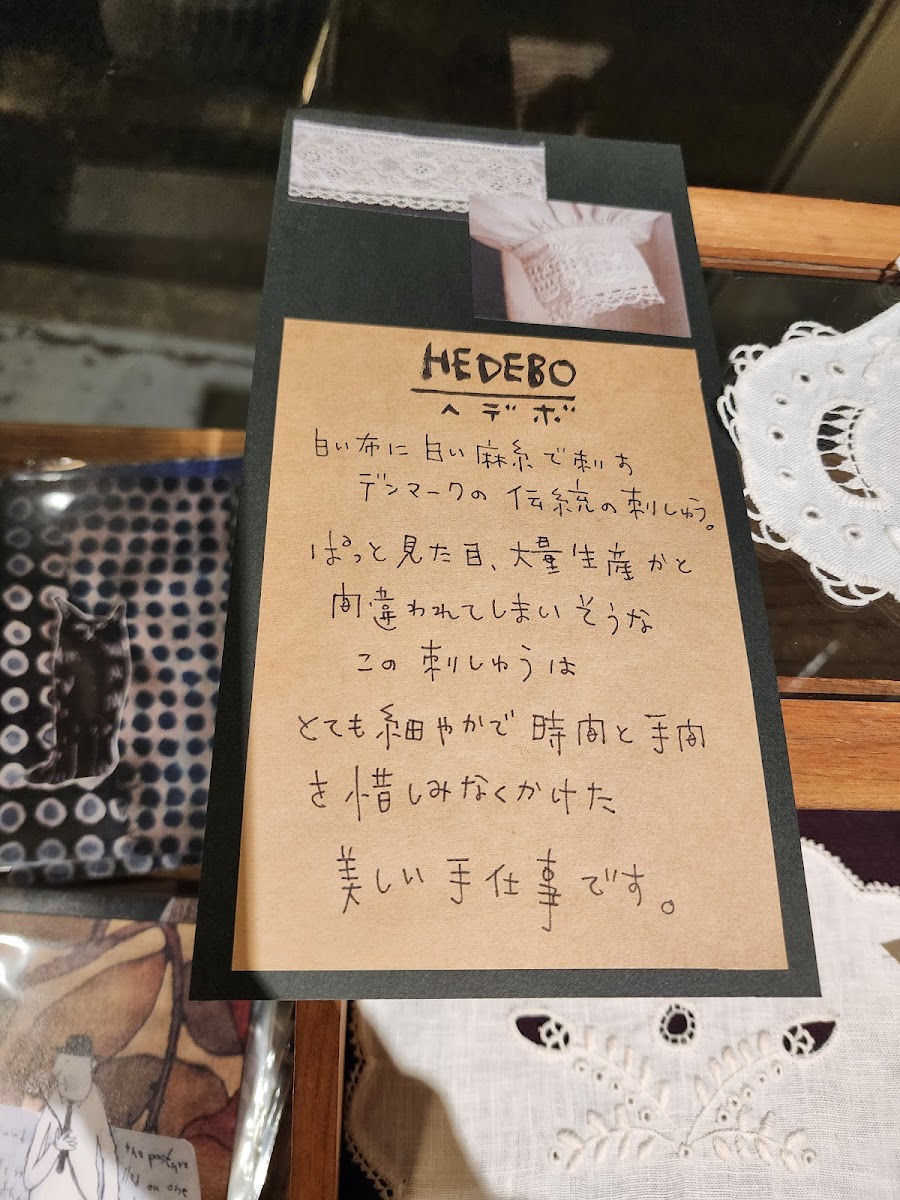 HEDEBO
ヘデボ
白い布に白い麻糸で刺す
デンマークの伝統の刺しゅう。
ぱっと見た目、大量生産かと
間違われてしまいそうな
この刺しゅうは
とても細やかで時間と手間
を惜しみなくかけた
美しい手仕事です。
the pasture
led on one